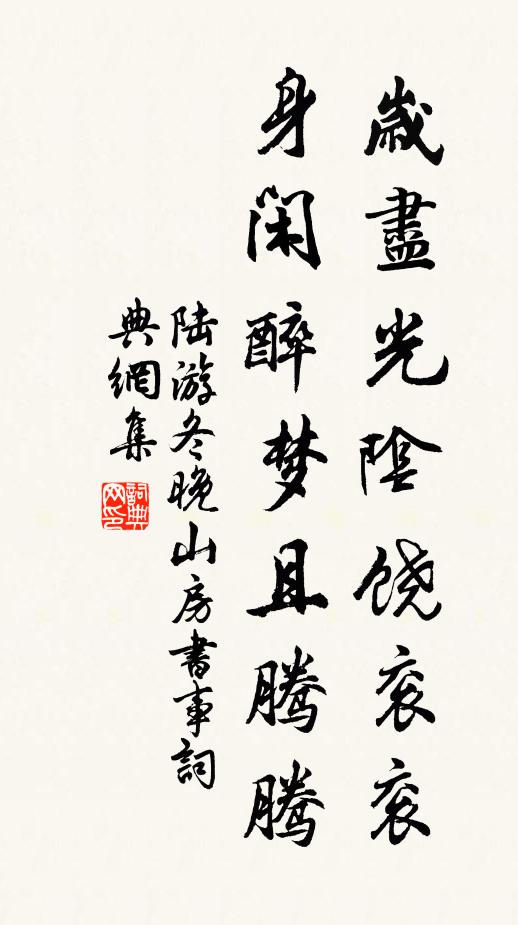 歲盡光陰饶衮衮
身閑醉梦且騰騰
陆游冬晚山房書事詞
典網集
詞典网印